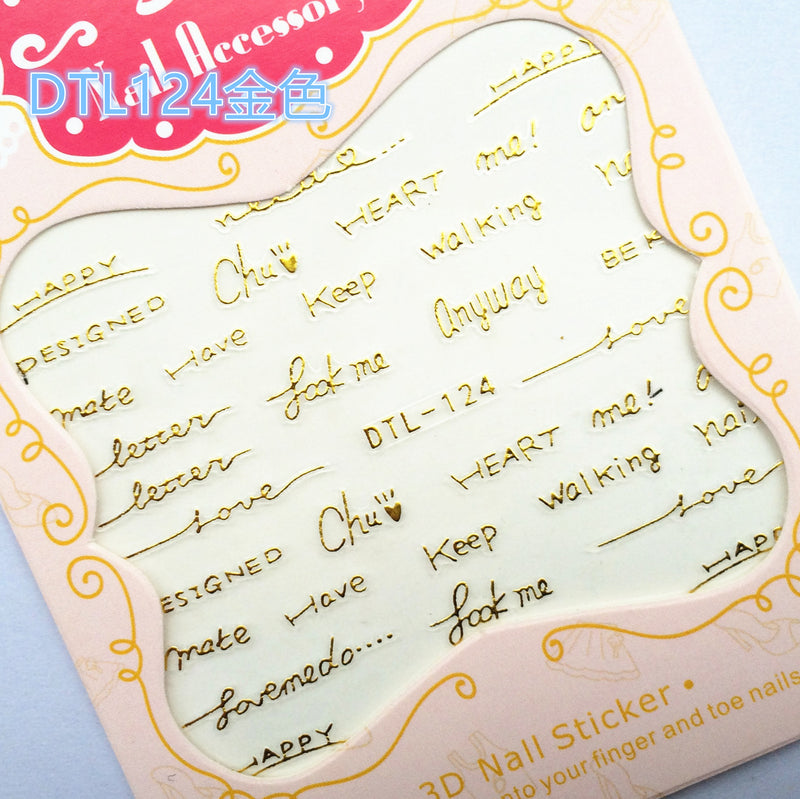 Nail Accessory
DTL124金色
HAPPY
me!
HEART
walking
HAPPY
Chu
Keep
Anyway
DESIGNED
Have
look me
love
make
letter
DTL-124
me!
letter
HEART
love
Chu
walking
love
ESIGNED
Have
Keep
HAPP
make
look me
lovemedo....
HAPPY
3D Nall Sticker •
onto your finger and toe nails